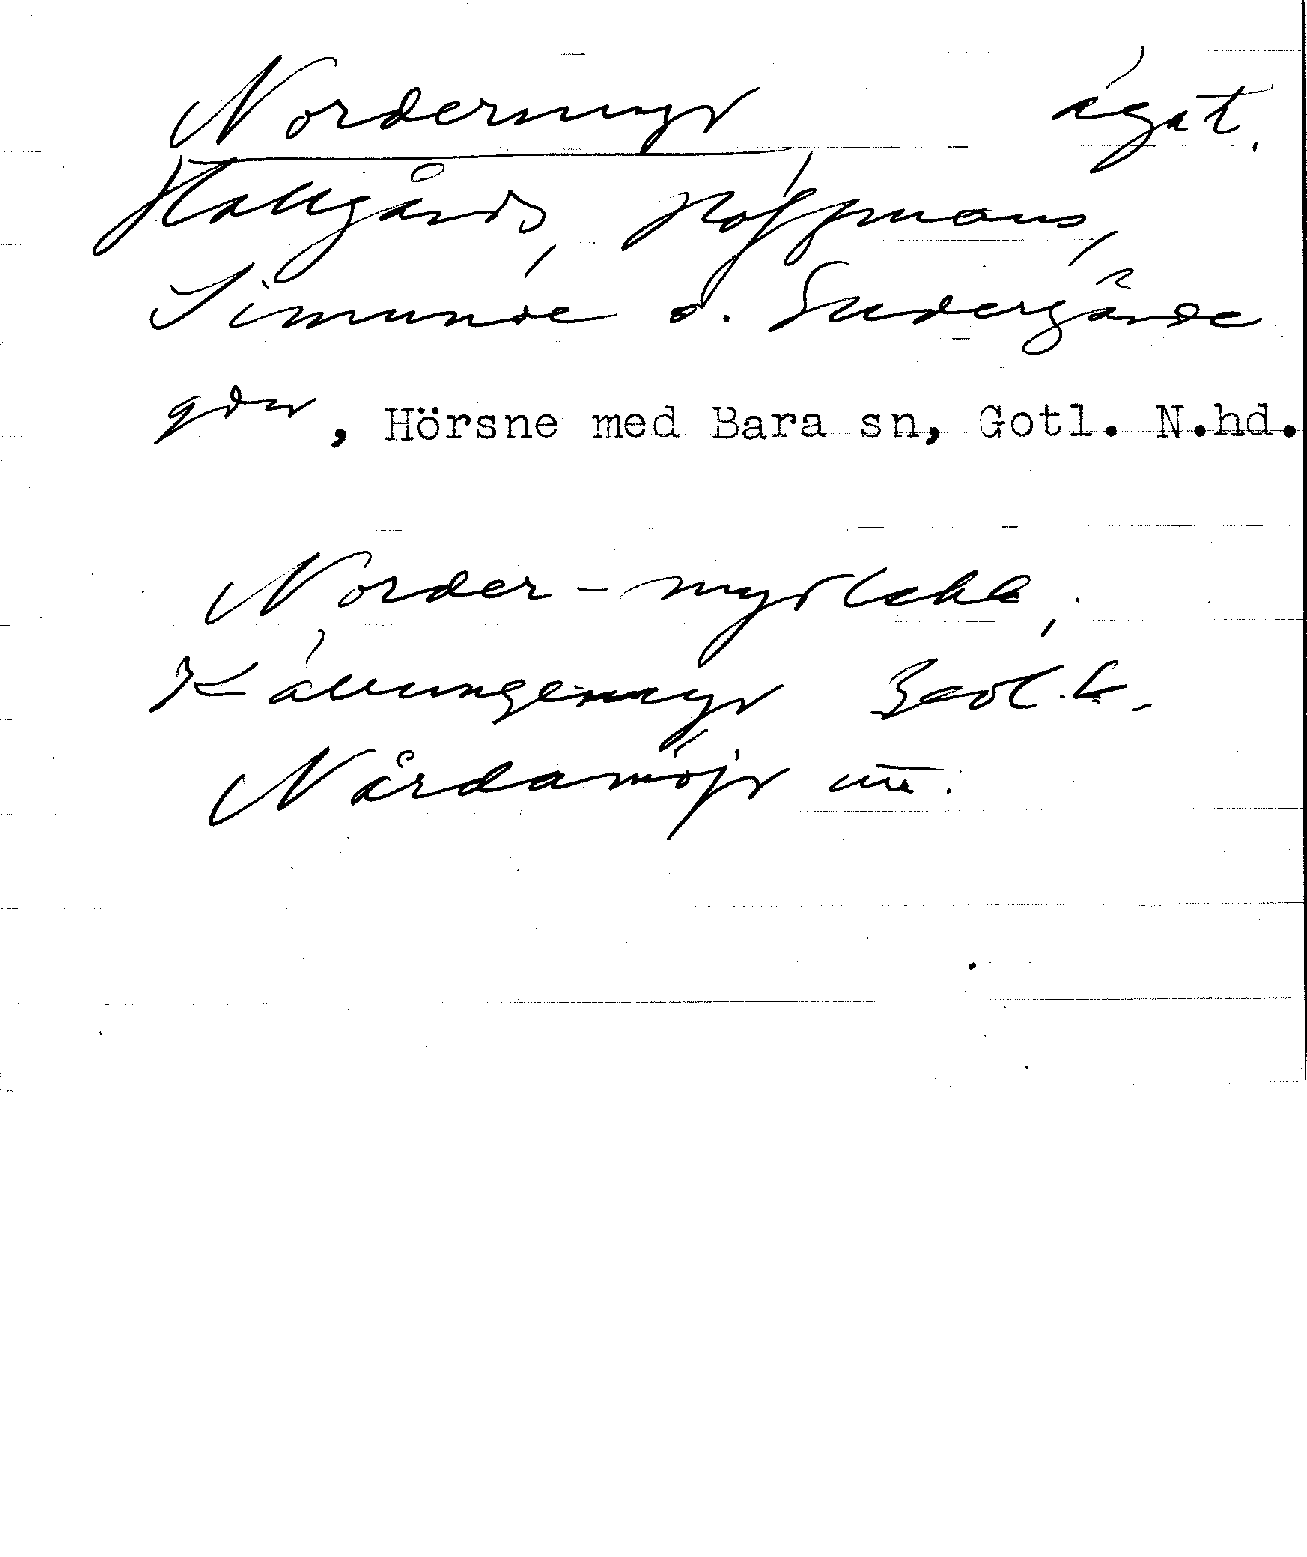 Nordermyr ägat.
Hallgårds, Hoffmans,
Simunde o. Sudergårde
gdr, Hörsne med Bara sn, Gotl. N.hd.
Norder-myr
Källungemyr Geol.k.
Nårdamöjr